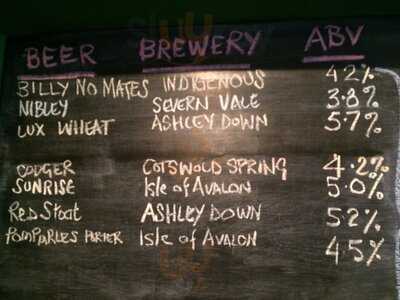 BEER BREWERY ABV
BILLY NO MATES INDIGENOUS 4.2%
NIBLEY SEVERN VALE 3.8%
LUX WHEAT ASHLEY DOWN 5.7%
CODGER COTSWOLD SPRING 4.2%
SUNRISE Isle of AVALON 5.0%
Red Stoat ASHLEY DOWN 5.2%
POMPARLES PORTER Isle of AVALON 4.5%